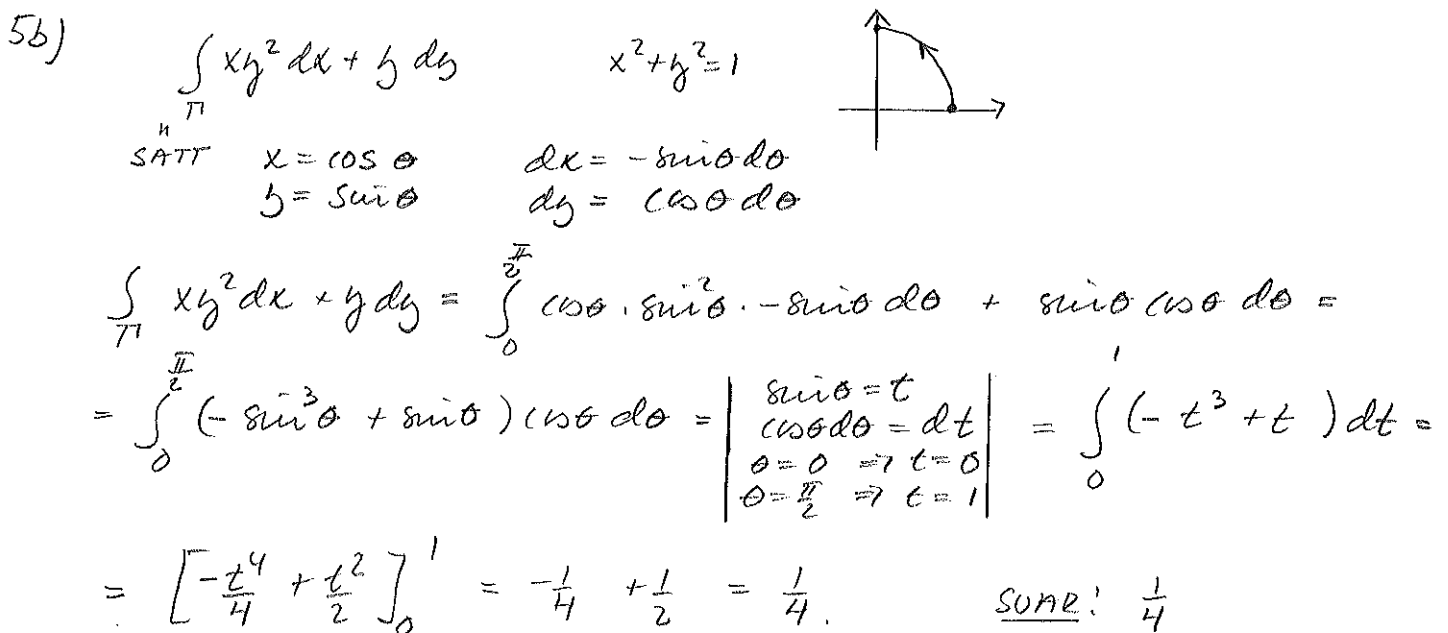 5b) ∫_Γ xy² dx + y dy x² + y² = 1
SÄTT x = cos θ dx = -sin θ dθ
y = sin θ dy = cos θ dθ
∫_Γ xy² dx + y dy = ∫_0^{π/2} cos θ · sin² θ · -sin θ dθ + sin θ cos θ dθ =
= ∫_0^{π/2} (-sin³ θ + sin θ) cos θ dθ = | sin θ = t cos θ dθ = dt θ = 0 ⇒ t = 0 θ = π/2 ⇒ t = 1 | = ∫_0^1 (-t³ + t) dt =
= [-t⁴/4 + t²/2]_0^1 = -1/4 + 1/2 = 1/4. SVAR: 1/4